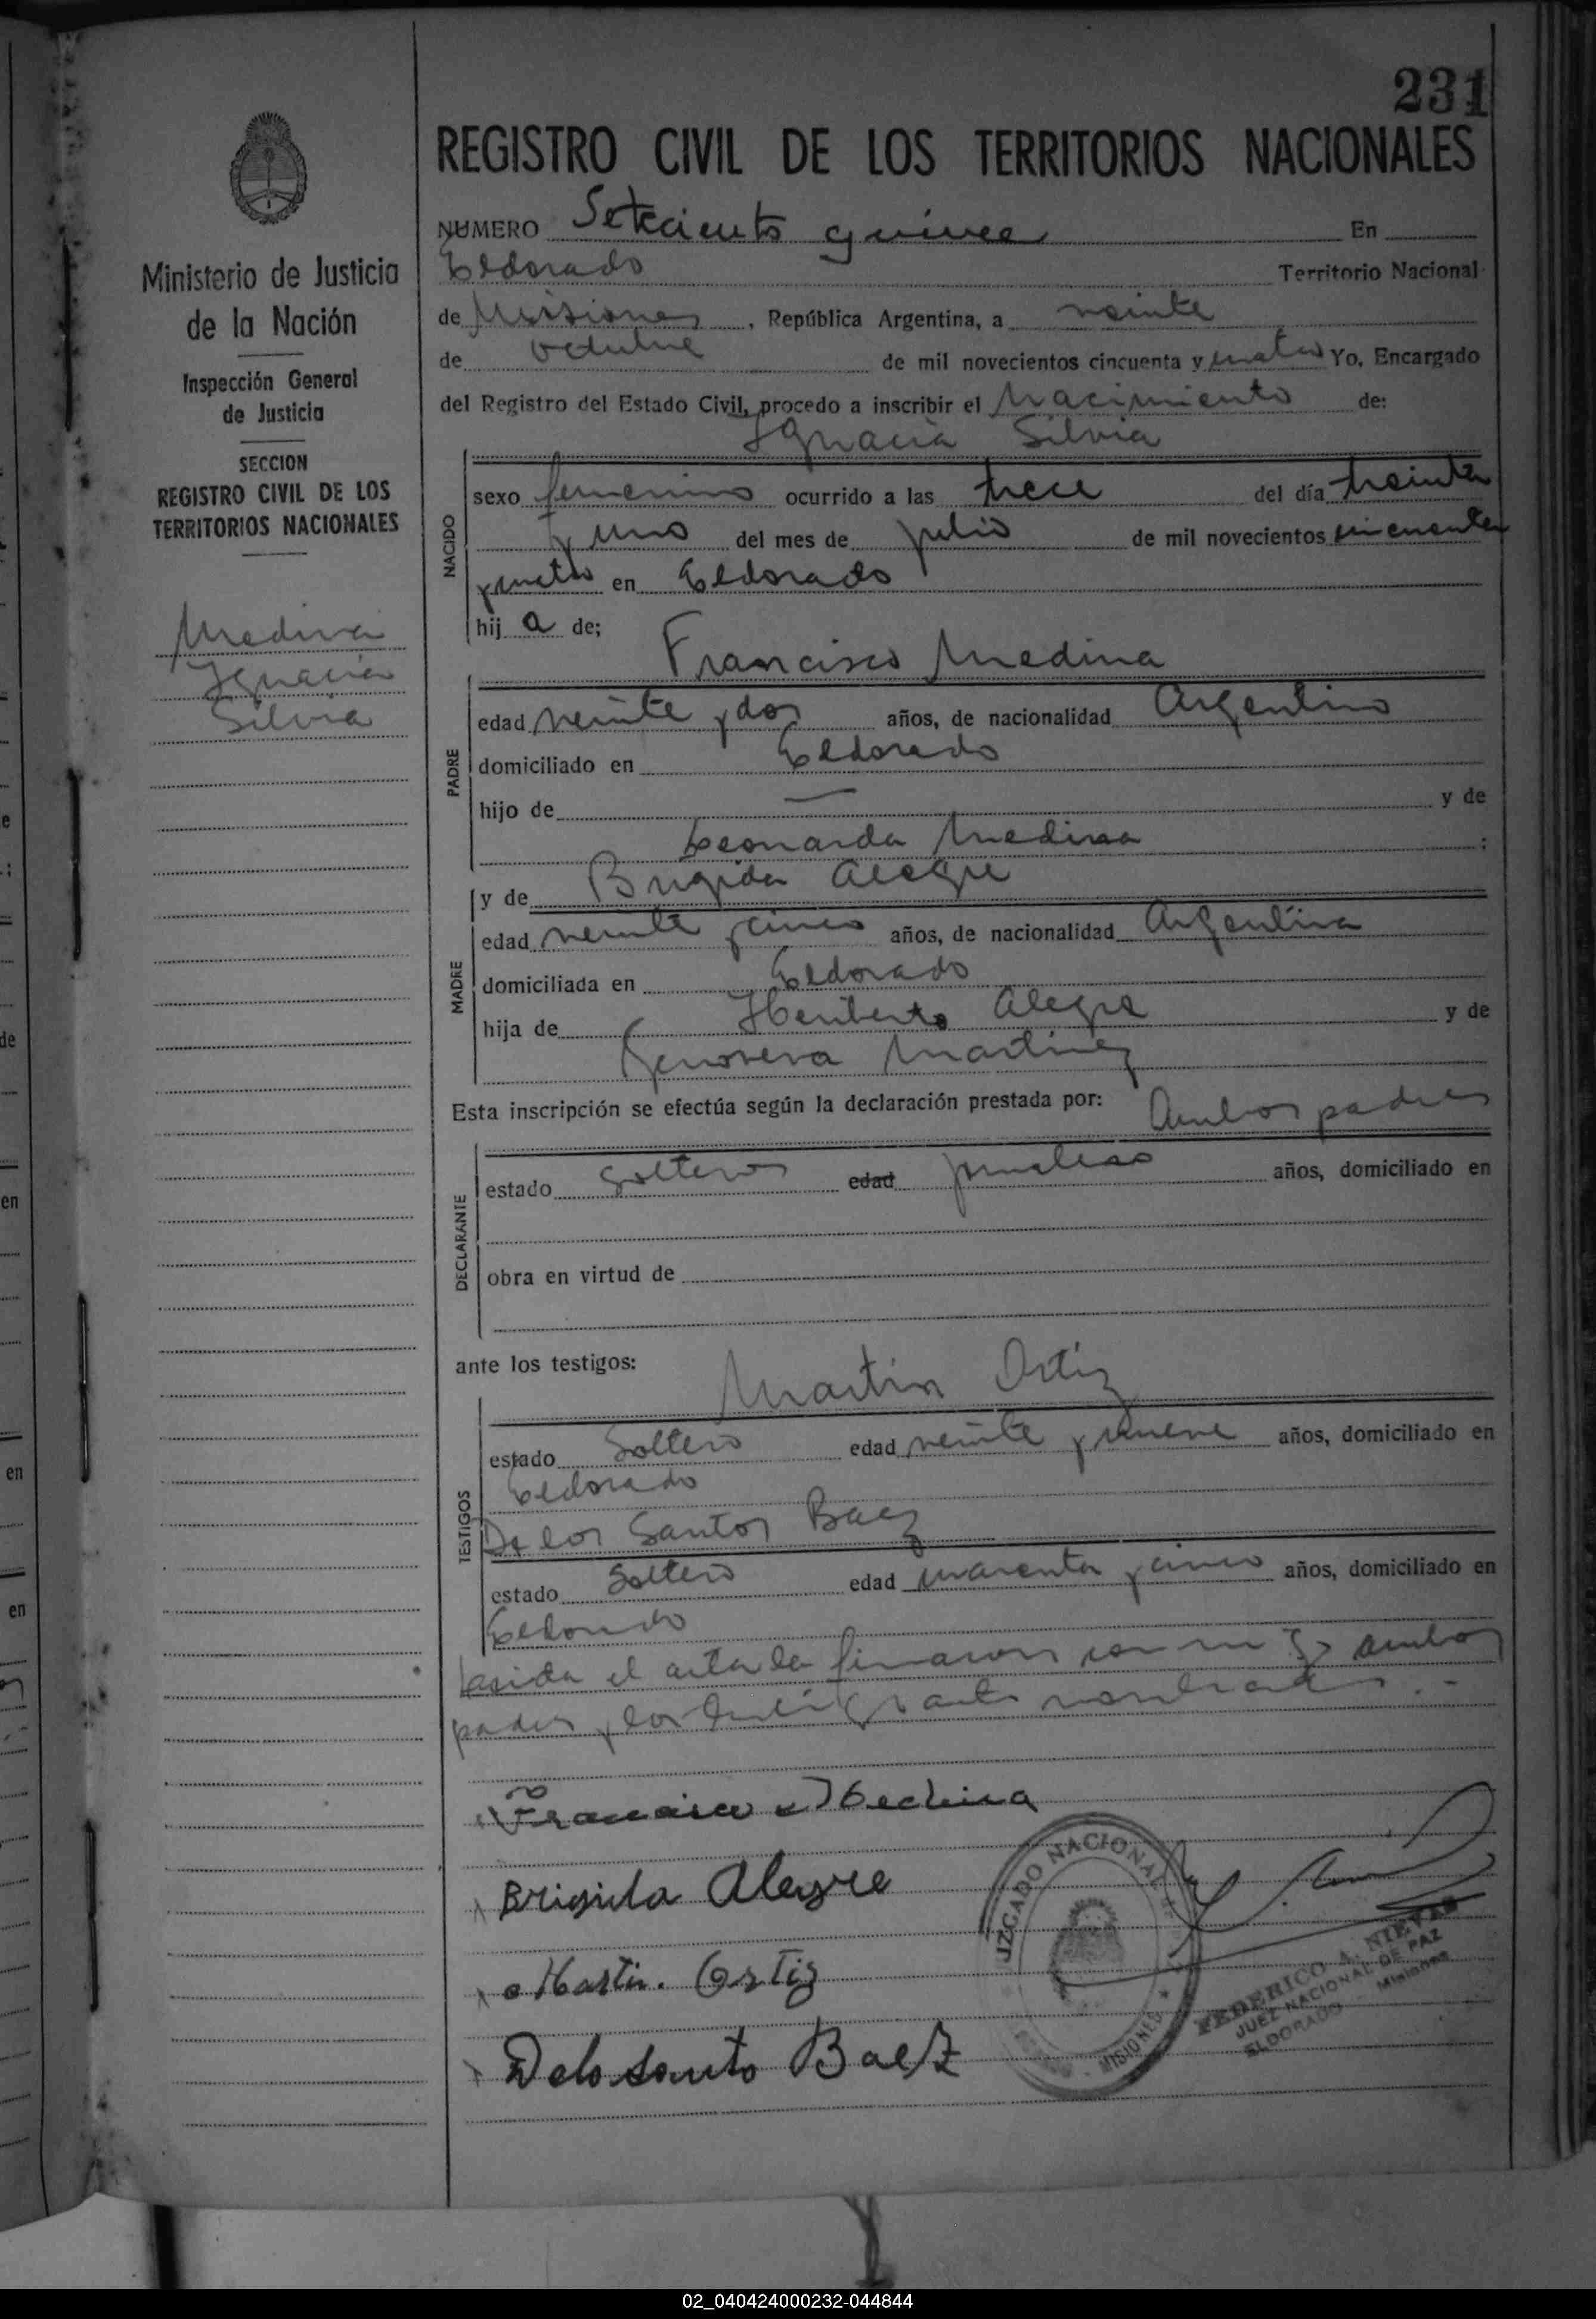 231
REGISTRO CIVIL DE LOS TERRITORIOS NACIONALES
NUMERO Setecientos quince En
Eldorado Territorio Nacional
de Misiones, República Argentina, a veinte
de octubre de mil novecientos cincuenta y cuatro Yo, Encargado
del Registro del Estado Civil, procedo a inscribir el Nacimiento de:
Ignacia Silvia
NACIDO
sexo femenino ocurrido a las trece del día treinta
y uno del mes de julio de mil novecientos cincuenta
y cuatro en Eldorado
hij a de;
Francisco Medina
PADRE
edad veinte y dos años, de nacionalidad Argentino
domiciliado en Eldorado
hijo de — y de
Leonarda Medina ;
y de Brigida Alegre
MADRE
edad veinte y cinco años, de nacionalidad Argentina
domiciliada en Eldorado
hija de Heriberto Alegre y de
Genoveva Martinez
Esta inscripción se efectúa según la declaración prestada por: Ambos padres
DECLARANTE
estado solteros edad años, domiciliado en
obra en virtud de
ante los testigos:
Martin Ortiz
TESTIGOS
estado Soltero edad veinte y nueve años, domiciliado en
Eldorado
De los Santos Baez
estado Soltero edad cuarenta y cinco años, domiciliado en
Eldorado
Leida el acta la firmaron con ambos
padres y los
Francisco Medina
Brigida Alegre
Martin. Ortiz
Delosanto Baez
JUZGADO NACIONAL
MISIONES
FEDERICO A. NIEVAS
JUEZ NACIONAL DE PAZ
ELDORADO - Misiones
Ministerio de Justicia
de la Nación
Inspección General
de Justicia
SECCION
REGISTRO CIVIL DE LOS
TERRITORIOS NACIONALES
Medina
Ignacia
Silvia
02_040424000232-044844